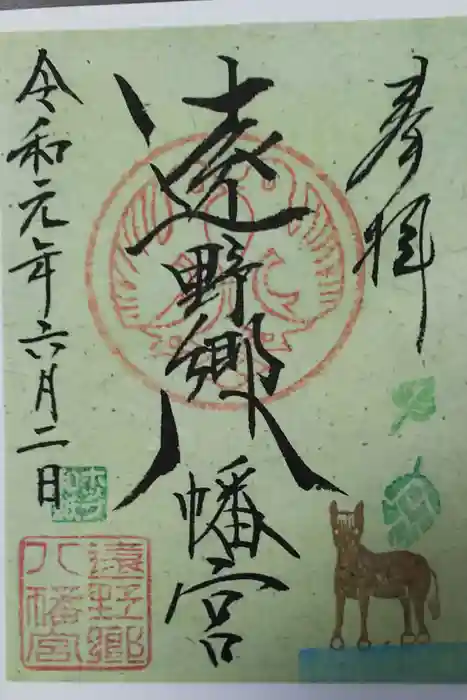 奉拝
遠野郷八幡宮
令和元年六月二日
遠野郷
八幡宮